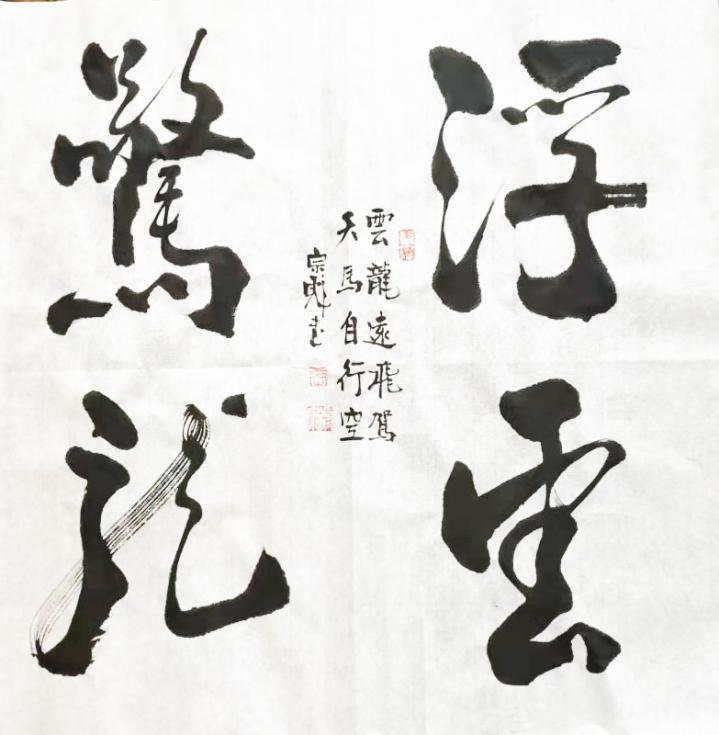 浮雲
驚龍
雲龍遠飛駕
天馬自行空
宗彪書